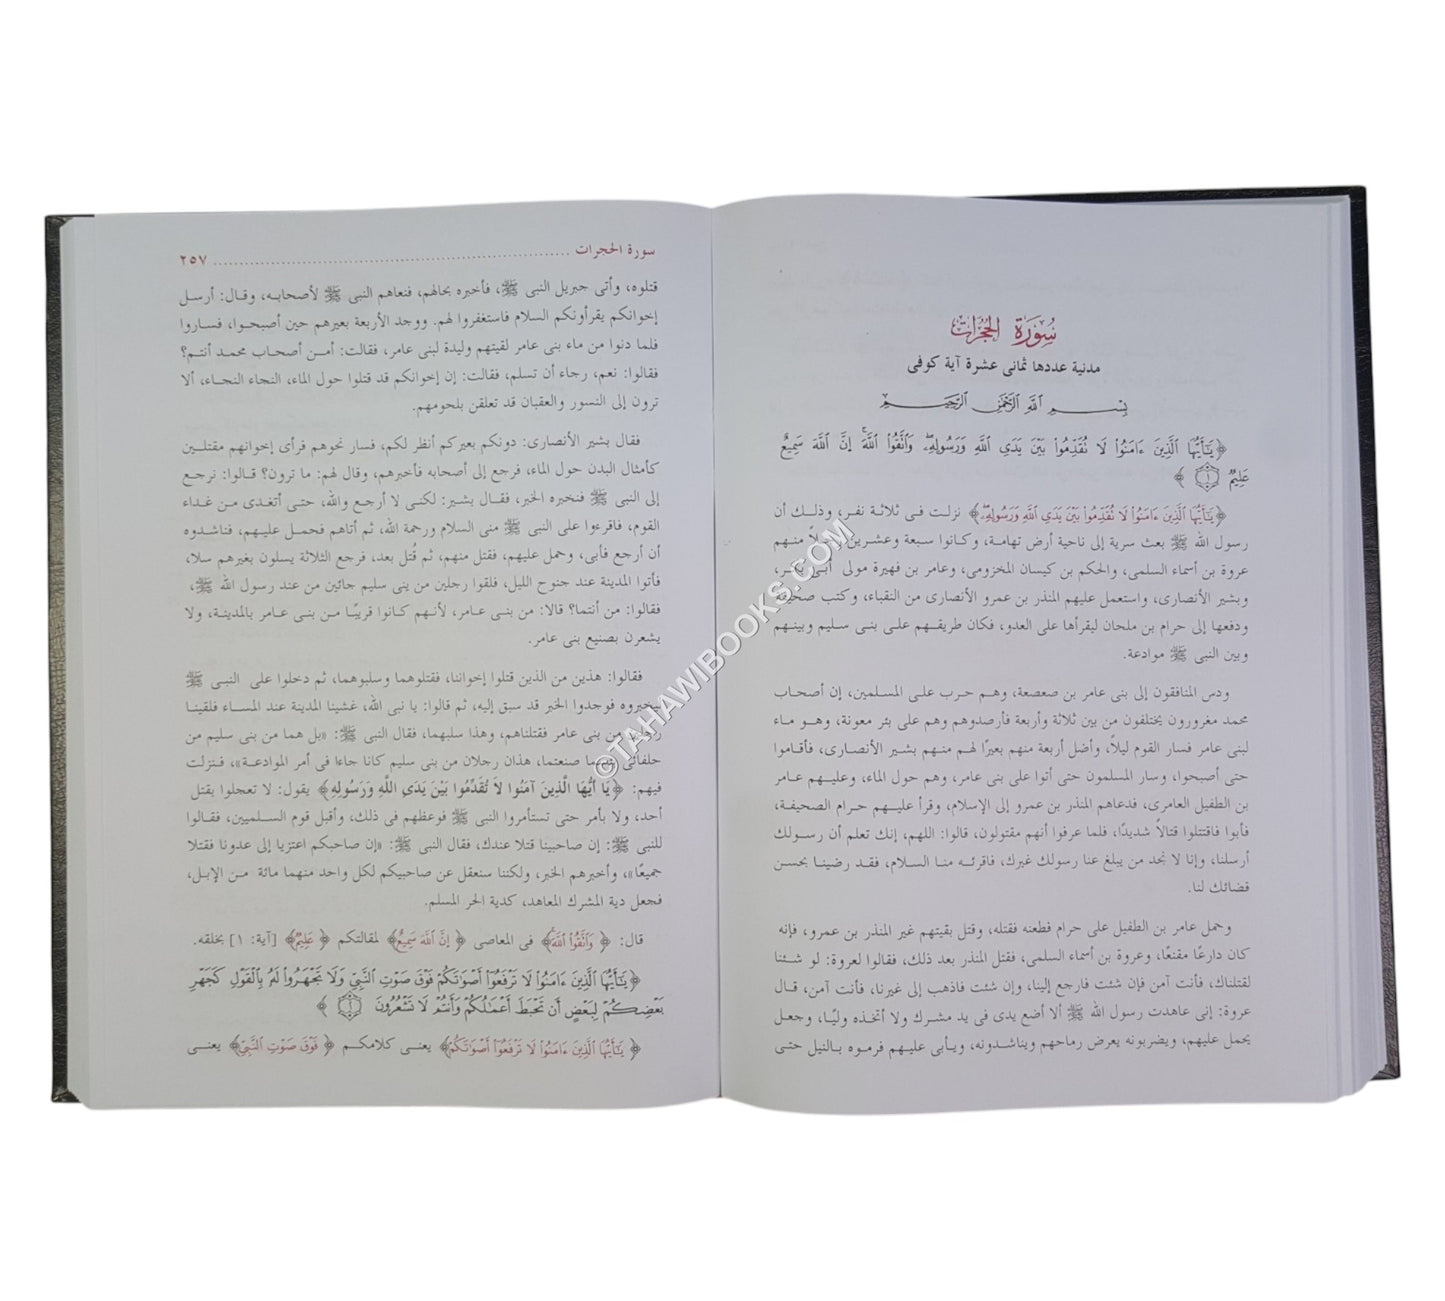 سُورَة الحُجُرَات
مدنية عددها ثمانى عشرة آية كوفى
بِسْمِ اللَّهِ الرَّحْمَٰنِ الرَّحِيمِ
﴿يَٰٓأَيُّهَا ٱلَّذِينَ ءَامَنُوا۟ لَا تُقَدِّمُوا۟ بَيْنَ يَدَىِ ٱللَّهِ وَرَسُولِهِۦ ۖ وَٱتَّقُوا۟ ٱللَّهَ ۚ إِنَّ ٱللَّهَ سَمِيعٌ
عَلِيمٌ ١﴾
﴿يَٰٓأَيُّهَا ٱلَّذِينَ ءَامَنُوا۟ لَا تُقَدِّمُوا۟ بَيْنَ يَدَىِ ٱللَّهِ وَرَسُولِهِۦ﴾ نزلت فى ثلاثة نفر، وذلك أن
رسول الله ﷺ بعث سرية إلى ناحية أرض تهامة، وكانوا سبعة وعشرين رجلاً منهم
عروة بن أسماء السلمى، والحكم بن كيسان المخزومى، وعامر بن فهيرة مولى أبى بكر،
وبشير الأنصارى، واستعمل عليهم المنذر بن عمرو الأنصارى من النقباء، وكتب صحيفة
ودفعها إلى حرام بن ملحان ليقرأها على العدو، فكان طريقهم على بنى سليم وبينهم
وبين النبى ﷺ موادعة.
ودس المنافقون إلى بنى عامر بن صعصعة، وهم حرب على المسلمين، إن أصحاب
محمد مغرورون يختلفون من بين ثلاثة وأربعة فأرصدوهم وهم على بئر معونة، وهو ماء
لبنى عامر فسار القوم ليلاً، وأضل أربعة منهم بعيرًا لهم منهم بشير الأنصارى، فأقاموا
حتى أصبحوا، وسار المسلمون حتى أتوا على بنى عامر، وهم حول الماء، وعليهم عامر
بن الطفيل العامرى، فدعاهم المنذر بن عمرو إلى الإسلام، وقرأ عليهم حرام الصحيفة،
فأبوا فاقتتلوا قتالاً شديدًا، فلما عرفوا أنهم مقتولون، قالوا: اللهم، إنك تعلم أن رسولك
أرسلنا، وإنا لا نجد من يبلغ عنا رسولك غيرك، فاقرئه منا السلام، فقد رضينا بحسن
قضائك لنا.
وحمل عامر بن الطفيل على حرام فطعنه فقتله، وقتل بقيتهم غير المنذر بن عمرو، فإنه
كان دارعًا مقنعًا، وعروة بن أسماء السلمى، فقتل المنذر بعد ذلك، فقالوا لعروة: لو شئنا
لقتلناك، فأنت آمن فإن شئت فارجع إلينا، وإن شئت فاذهب إلى غيرنا، فأنت آمن، قال
عروة: إنى عاهدت رسول الله ﷺ ألا أضع يدى فى يد مشرك ولا أتخذه وليًا، وجعل
يحمل عليهم، ويضربونه بعرض رماحهم ويناشدونه، ويأبى عليهم فرموه بالنبل حتى
سورة الحجرات ........ ٢٥٧
قتلوه، وأتى جبريل النبى ﷺ، فأخبره بحالهم، فنعاهم النبى ﷺ لأصحابه، وقال: أرسل
إخوانكم يقرأونكم السلام فاستغفروا لهم. ووجد الأربعة بعيرهم حين أصبحوا، فساروا
فلما دنوا من ماء بنى عامر لقيتهم وليدة لبنى عامر، فقالت: أمن أصحاب محمد أنتم؟
فقالوا: نعم، رجاء أن تسلم، فقالت: إن إخوانكم قد قتلوا حول الماء، النجاء النجاء، ألا
ترون إلى النسور والعقبان قد تعلقن بلحومهم.
فقال بشير الأنصارى: دونكم بعيركم أنظر لكم، فسار نحوهم فرأى إخوانهم مقتلين
كأمثال البدن حول الماء، فرجع إلى أصحابه فأخبرهم، وقال لهم: ما ترون؟ قالوا: نرجع
إلى النبى ﷺ فنخبره الخبر، فقال بشير: لكنى لا أرجع والله، حتى أتغدى من غداء
القوم، فاقرءوا على النبى ﷺ منى السلام ورحمة الله، ثم أتاهم فحمل عليهم، فناشدوه
أن أرجع فأبى، وحمل عليهم، فقتل منهم، ثم قُتل بعد، فرجع الثلاثة يسلون بغيرهم سلا،
فأتوا المدينة عند جنوح الليل، فلقوا رجلين من بنى سليم جائين من عند رسول الله ﷺ،
فقالوا: من أنتما؟ قالا: من بنى عامر، لأنهم كانوا قريبًا من بنى عامر بالمدينة، ولا
يشعرن بصنيع بنى عامر.
فقالوا: هذين من الذين قتلوا إخواننا، فقتلوهما وسلبوهما، ثم دخلوا على النبى ﷺ
ليخبروه فوجدوا الخبر قد سبق إليه، ثم قالوا: يا نبى الله، غشينا المدينة عند المساء فلقينا
رجلين من بنى عامر فقتلناهم، وهذا سلبهما، فقال النبى ﷺ: «بل هما من بنى سليم من
حلفائى بئس ما صنعتما، هذان رجلان من بنى سليم كانا جاءا فى أمر الموادعة»، فنزلت
فيهم: ﴿يَا أَيُّهَا الَّذِينَ آمَنُوا لاَ تُقَدِّمُوا بَيْنَ يَدَىِ اللَّهِ وَرَسُولِهِ﴾ يقول: لا تعجلوا بقتل
أحد، ولا بأمر حتى تستأمروا النبى ﷺ فوعظهم فى ذلك، وأقبل قوم السلميين، فقالوا
للنبى ﷺ: إن صاحبينا قتلا عندك، فقال النبى ﷺ: «إن صاحبكم اعتزيا إلى عدونا فقتلا
جميعًا»، وأخبرهم الخبر، ولكننا سنعقل عن صاحبيكم لكل واحد منهما مائة من الإبل،
فجعل دية المشرك المعاهد، كدية الحر المسلم.
قال: ﴿وَٱتَّقُوا۟ ٱللَّهَ﴾ فى المعاصى ﴿إِنَّ ٱللَّهَ سَمِيعٌ﴾ لمقالتكم ﴿عَلِيمٌ﴾ [آية: ١] بخلقه.
﴿يَٰٓأَيُّهَا ٱلَّذِينَ ءَامَنُوا۟ لَا تَرْفَعُوٓا۟ أَصْوَٰتَكُمْ فَوْقَ صَوْتِ ٱلنَّبِىِّ وَلَا تَجْهَرُوا۟ لَهُۥ بِٱلْقَوْلِ كَجَهْرِ
بَعْضِكُمْ لِبَعْضٍ أَن تَحْبَطَ أَعْمَٰلُكُمْ وَأَنتُمْ لَا تَشْعُرُونَ ٢﴾
﴿يَٰٓأَيُّهَا ٱلَّذِينَ ءَامَنُوا۟ لَا تَرْفَعُوٓا۟ أَصْوَٰتَكُمْ﴾ يعنى كلامكم ﴿فَوْقَ صَوْتِ ٱلنَّبِىِّ﴾ يعنى
©TAHAWIBOOKS.COM